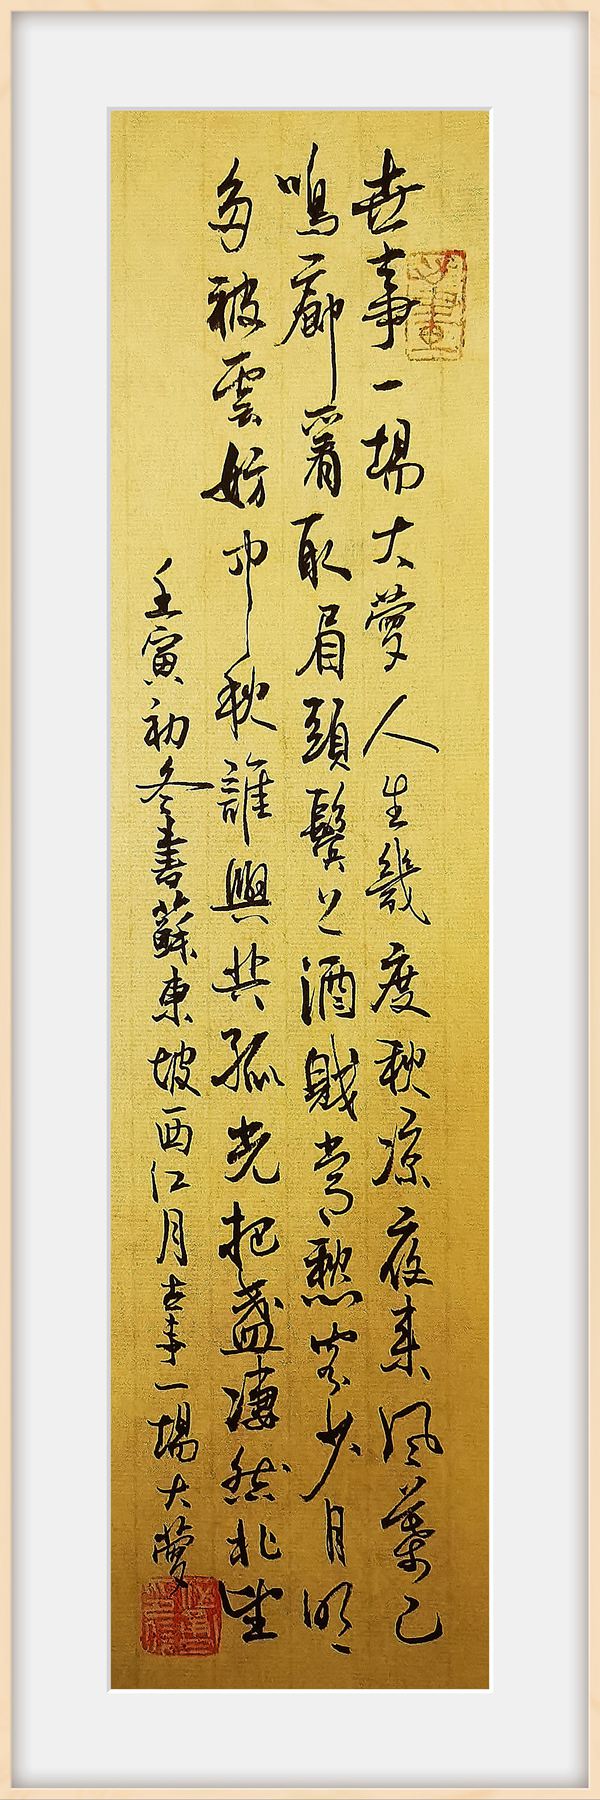 世事一場大夢人生幾度秋涼夜来風葉已
鳴廊看取眉頭鬢上酒賤常愁客少月明
多被雲妨中秋誰與共孤光把盞凄然北望
壬寅初冬書蘇東坡西江月世事一場大夢